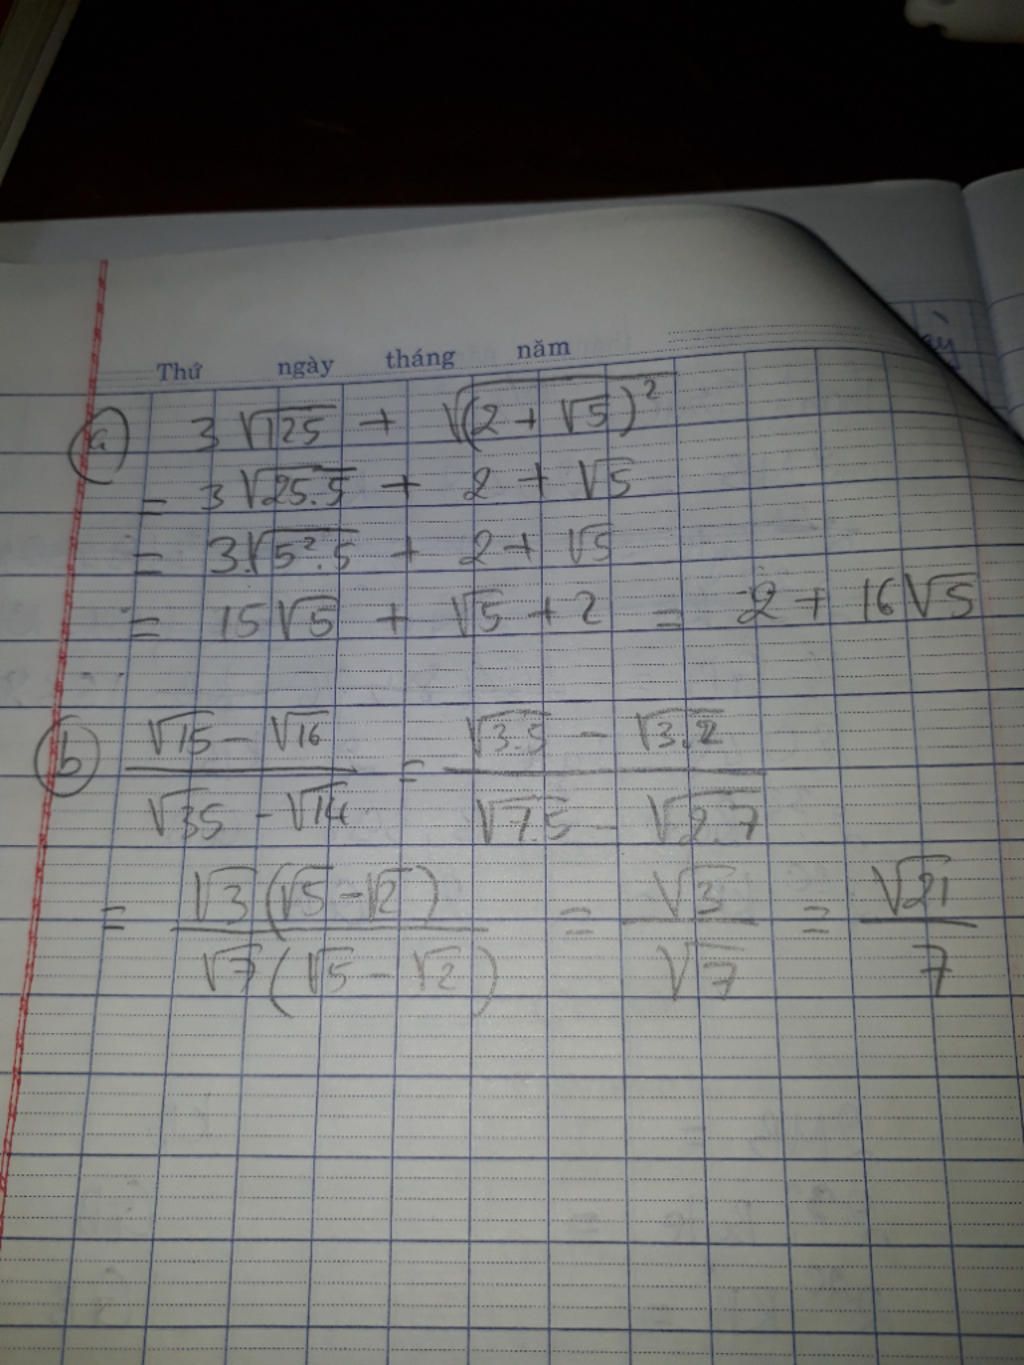 Thứ ngày tháng năm
a) 3√125 + √(2 + √5)²
= 3√25.5 + 2 + √5
= 3.√5².5 + 2 + √5
= 15√5 + √5 + 2 = 2 + 16√5
b) (√15 - √16)/(√35 - √14) = (√3.5 - √3.2)/(√7.5 - √2.7)
= √3(√5 - √2)/√7(√5 - √2) = √3/√7 = √21/7